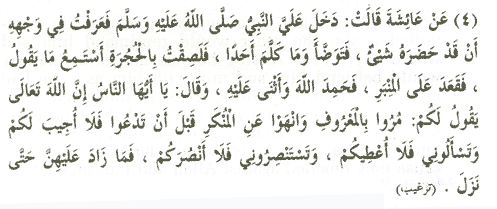 (٤) عَنْ عَائِشَةَ قَالَتْ: دَخَلَ عَلَيَّ النَّبِيُّ صَلَّى اللّٰهُ عَلَيْهِ وَسَلَّمَ فَعَرَفْتُ فِي وَجْهِهِ
أَنْ قَدْ حَضَرَهُ شَيْئٌ ، فَتَوَضَّأَ وَمَا كَلَّمَ أَحَدًا ، فَلَصِقْتُ بِالْحُجْرَةِ أَسْتَمِعُ مَا يَقُولُ
، فَقَعَدَ عَلَى الْمِنْبَرِ ، فَحَمِدَ اللّٰهَ وَأَثْنَى عَلَيْهِ ، وَقَالَ: يَا أَيُّهَا النَّاسُ إِنَّ اللّٰهَ تَعَالَى
يَقُولُ لَكُمْ: مُرُوا بِالْمَعْرُوفِ وَانْهَوْا عَنِ الْمُنْكَرِ قَبْلَ أَنْ تَدْعُوا فَلَا أُجِيبَ لَكُمْ
وَتَسْأَلُونِي فَلَا أُعْطِيكُمْ ، وَتَسْتَنْصِرُونِي فَلَا أَنْصُرَكُمْ ، فَمَا زَادَ عَلَيْهِنَّ حَتَّى
نَزَلَ . (ترغيب)